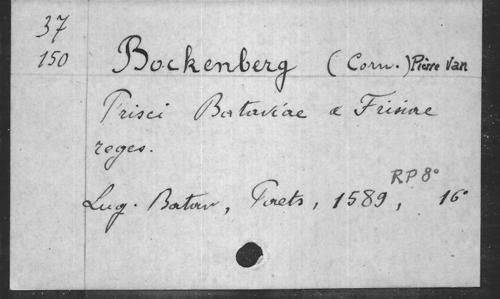 37
150 Bockenberg (Corn.) Pierre Van
Prisci Bataviae & Frisiae
reges.
RP 8°
Lug. Batav, Paets, 1589, 16°